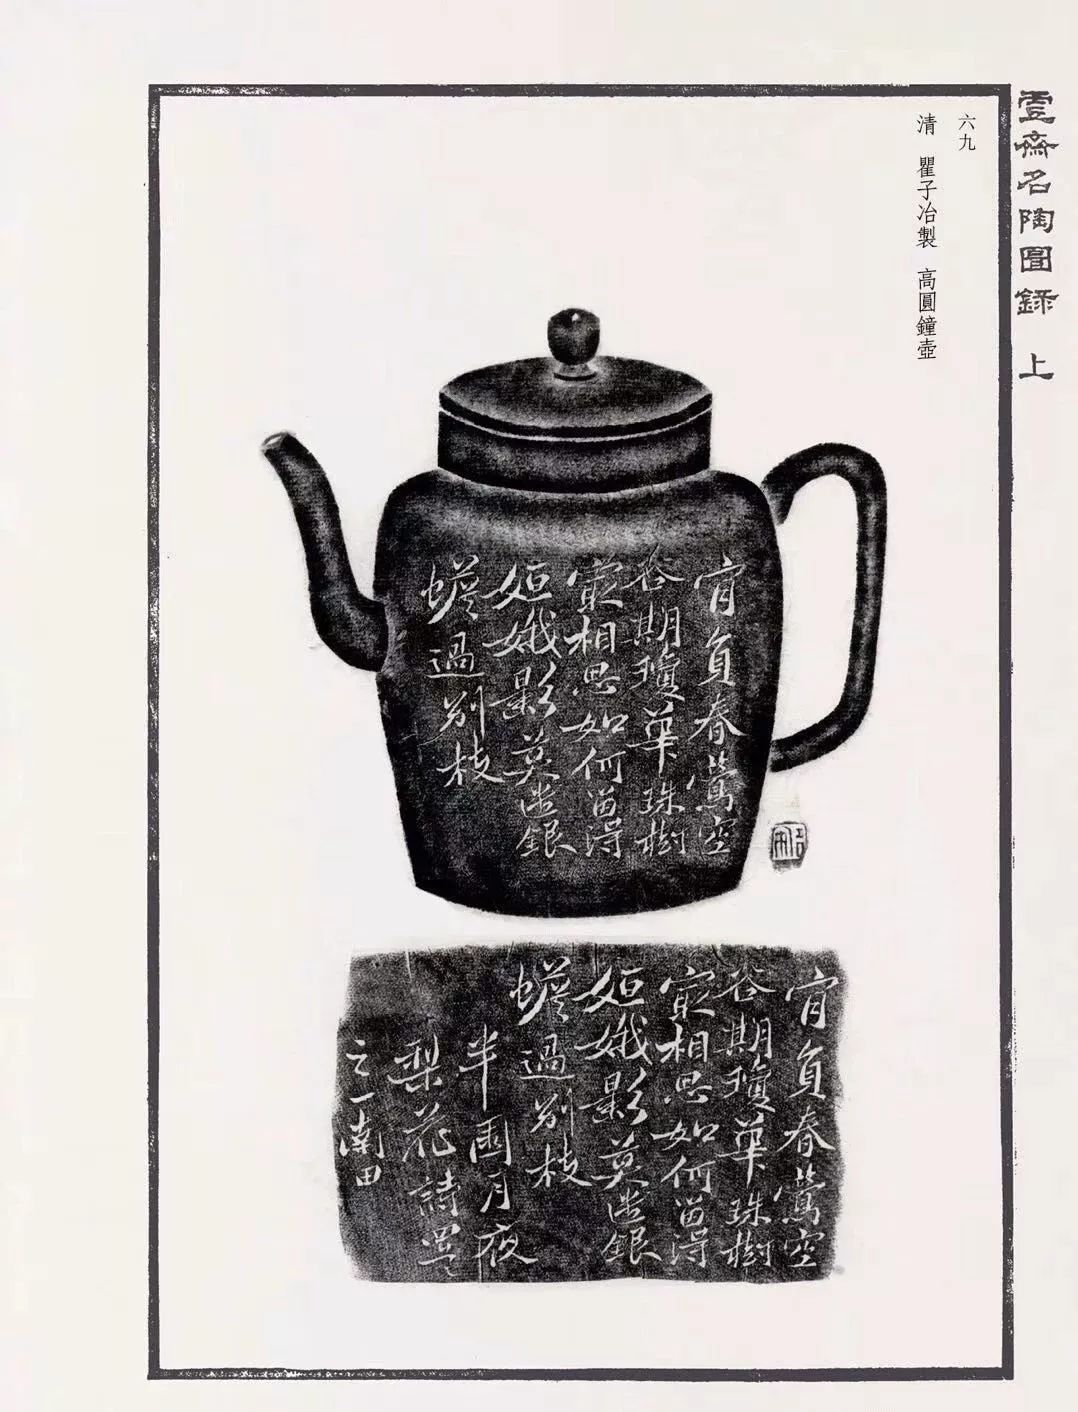 壹齋名陶圖錄 上
六九
清 瞿子冶製 高圓鐘壺
肎負春鶯空
谷期瓊華珠樹
冣相思如何留得
姮娥影莫遣銀
蟾過別枝
肎負春鶯空
谷期瓊華珠樹
冣相思如何留得
姮娥影莫遣銀
蟾過別枝
半園月夜
梨花詩
之一南田